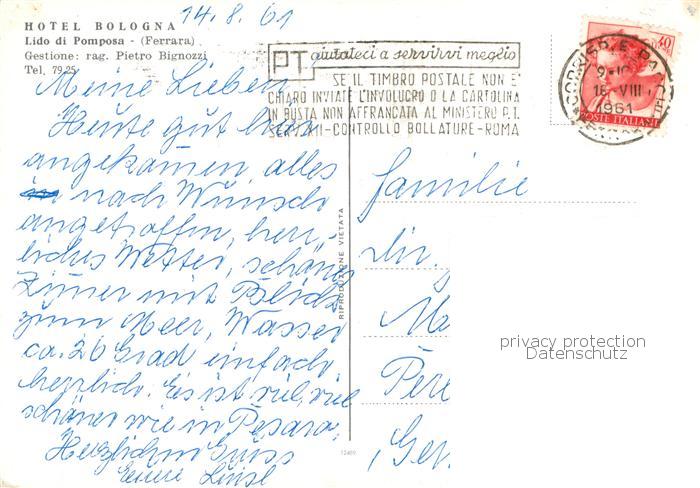 14.8.61
HOTEL BOLOGNA
Lido di Pomposa - (Ferrara)
Gestione: rag. Pietro Bignozzi
Tel. 79.25
PT aiutateci a servirvi meglio
SE IL TIMBRO POSTALE NON E'
CHIARO INVIATE L'INVOLUCRO O LA CARTOLINA
IN BUSTA NON AFFRANCATA AL MINISTERO P.T.
CONTROLLO BOLLATURE-ROMA
40
16-VIII
1961
POSTE ITALIANE
Meine Lieben
Heute gut hier
angekommen, alles
nach Wunsch
angetroffen, herr-
liches Wetter, schönes
Zimmer mit Blick
zum Meer, Wasser
ca. 26 Grad einfach
herzlich. Es ist viel viel
schöner wie in Pesaro.
Herzlichen Gruss
Eure Liesl
RIPRODUZIONE VIETATA
12469
Familie
Dir.
M
Pere
Ger
privacy protection
Datenschutz